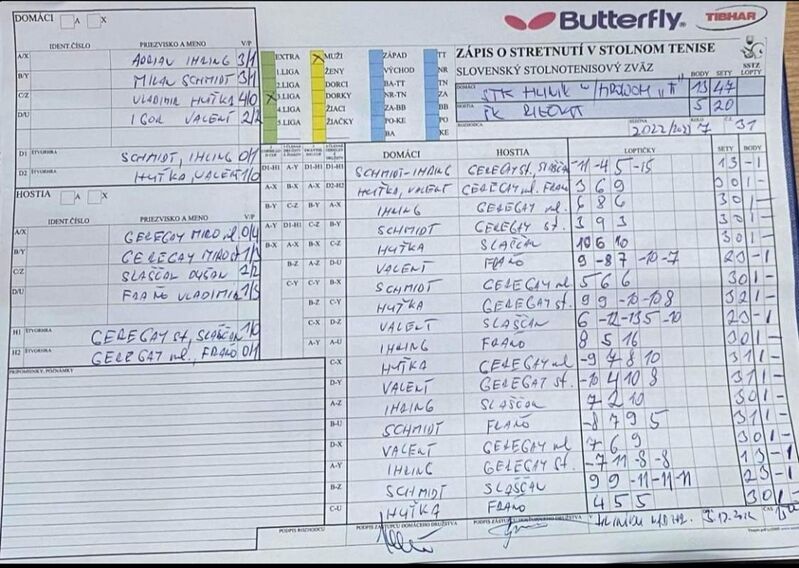 DOMÁCI A X
Butterfly TIBHAR
IDENT.ČÍSLO PRIEZVISKO A MENO V/P
ZÁPIS O STRETNUTÍ V STOLNOM TENISE
SLOVENSKÝ STOLNOTENISOVÝ ZVÄZ SSTZ
A/X ADRIAN IHRING 3/1
B/Y MILAN SCHMIDT 3/1
C/Z VLADIMIR HUŤKA 4/0
D/U IGOR VALENT 2/2
D1 ŠTVORHRA SCHMIDT, IHRING 0/1
D2 ŠTVORHRA HUŤKA, VALENT 1/0
EXTRA MUŽI ZÁPAD TT
I.LIGA ŽENY VÝCHOD NR
2.LIGA DORCI BA-TT TN
3.LIGA DORKY NR-TN ZA
4.LIGA ŽIACI ZA-BB BB
5.LIGA ŽIAČKY PO-KE PO
BA KE
DOMÁCI BODY SETY LOPTY
STK HLINÍK 13 47
HOSTIA 5 20
ROZHODCA 7 31
HOSTIA A X
IDENT.ČÍSLO PRIEZVISKO A MENO V/P
A/X GEREGAY MIRO ml. 0/4
B/Y GEREGAY MIRO st. 1/3
C/Z SLAŠČAN DUŠAN 2/2
D/U FRAŇO VLADIMIR 1/3
H1 ŠTVORHRA GEREGAY st, SLAŠČAN 1/0
H2 ŠTVORHRA GEREGAY ml, FRAŇO 0/1
PRIPOMIENKY, POZNÁMKY
DOMÁCI HOSTIA LOPTIČKY SETY BODY
D1-H1 A-Y D1-H1 SCHMIDT-IHRING GEREGAY st, SLAŠČAN -11 -4 5 -15 1 3 - 1
A-X B-X A-X D2-H2 HUŤKA, VALENT GEREGAY ml, FRAŇO 3 6 9 3 0 1 -
B-Y C-Z B-Y A-X IHRING GEREGAY ml. 6 8 6 3 0 1 -
A-Y D1-H1 C-Z B-Y SCHMIDT GEREGAY st. 3 9 3 3 0 1 -
B-X A-X B-X C-Z HUŤKA SLAŠČAN 10 6 10 3 0 1 -
B-Z A-Z D-U VALENT FRAŇO 9 -8 7 -10 -7 2 3 - 1
C-Y C-Y B-X SCHMIDT GEREGAY ml 5 6 6 3 0 1 -
B-Z C-Y HUŤKA GEREGAY st. 9 9 -10 -10 8 3 2 1 -
C-X D-Z VALENT SLAŠČAN 6 -12 -13 5 -10 2 3 - 1
A-Y A-U IHRING FRAŇO 8 5 16 3 0 1 -
C-X HUŤKA GEREGAY ml -9 7 8 10 3 1 1 -
D-Y VALENT GEREGAY st. -10 4 10 8 3 1 1 -
A-Z IHRING SLAŠČAN 7 2 10 3 0 1 -
B-U SCHMIDT FRAŇO -8 7 9 5 3 1 1 -
D-X VALENT GEREGAY ml 7 6 9 3 0 1 -
A-Y IHRING GEREGAY st. -7 11 -8 -8 1 3 - 1
B-Z SCHMIDT SLAŠČAN 9 9 -11 -11 -11 2 3 - 1
C-U HUŤKA FRAŇO 4 5 5 3 0 1 -
PODPIS ROZHODCU PODPIS ZÁSTUPCU DOMÁCEHO DRUŽSTVA PODPIS ZÁSTUPCU HOSŤUJÚCEHO DRUŽSTVA